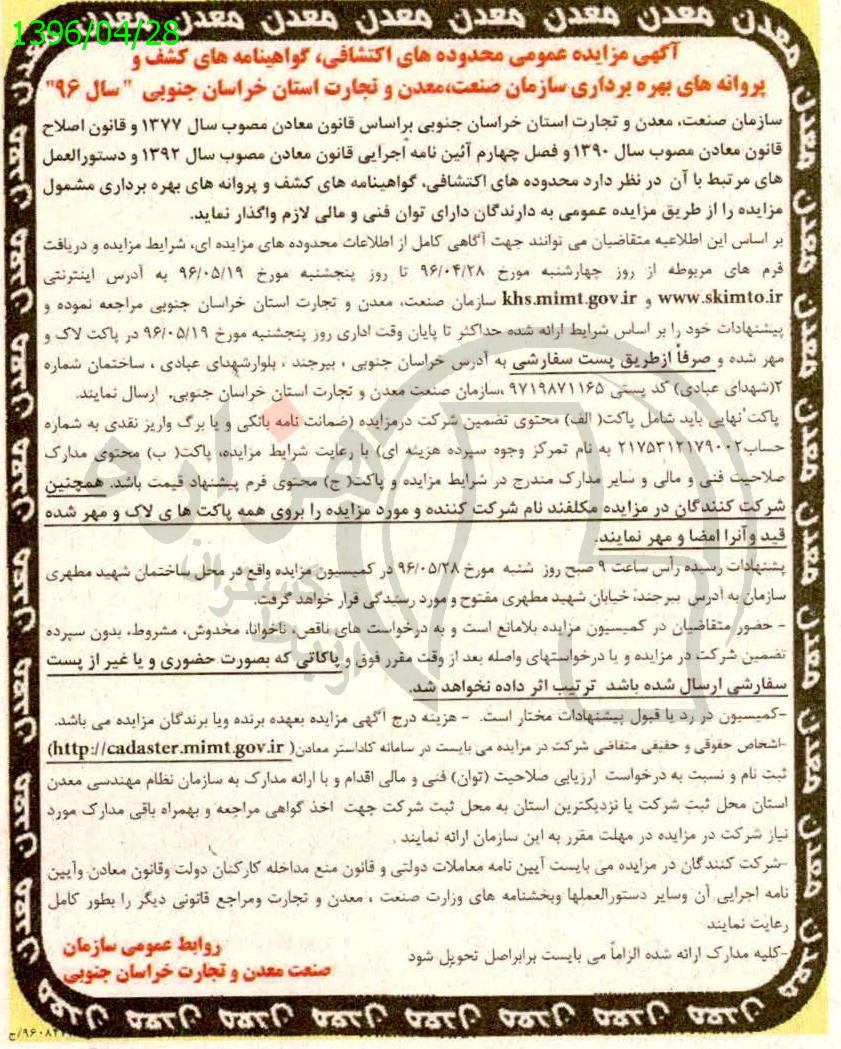 1396/04/28
معدن معدن معدن معدن معدن معدن معدن معدن
آگهی مزایده عمومی محدوده های اکتشافی، گواهینامه های کشف و
پروانه های بهره برداری سازمان صنعت،معدن و تجارت استان خراسان جنوبی "سال ۹۶"
سازمان صنعت، معدن و تجارت استان خراسان جنوبی براساس قانون معادن مصوب سال ۱۳۷۷ و قانون اصلاح
قانون معادن مصوب سال ۱۳۹۰ و فصل چهارم آئین نامه اجرایی قانون معادن مصوب سال ۱۳۹۲ و دستورالعمل
های مرتبط با آن در نظر دارد محدوده های اکتشافی، گواهینامه های کشف و پروانه های بهره برداری مشمول
مزایده را از طریق مزایده عمومی به دارندگان دارای توان فنی و مالی لازم واگذار نماید.
بر اساس این اطلاعیه متقاضیان می توانند جهت آگاهی کامل از اطلاعات محدوده های مزایده ای، شرایط مزایده و دریافت
فرم های مربوطه از روز چهارشنبه مورخ ۹۶/۰۴/۲۸ تا روز پنجشنبه مورخ ۹۶/۰۵/۱۹ به آدرس اینترنتی
www.skimto.ir و khs.mimt.gov.ir سازمان صنعت، معدن و تجارت استان خراسان جنوبی مراجعه نموده و
پیشنهادات خود را بر اساس شرایط ارائه شده حداکثر تا پایان وقت اداری روز پنجشنبه مورخ ۹۶/۰۵/۱۹ در پاکت لاک و
مهر شده و صرفاً ازطریق پست سفارشی به آدرس خراسان جنوبی ، بیرجند ، بلوارشهدای عبادی ، ساختمان شماره
۲(شهدای عبادی) کد پستی ۹۷۱۹۸۷۱۱۶۵ ،سازمان صنعت معدن و تجارت استان خراسان جنوبی، ارسال نمایند.
پاکت نهایی باید شامل پاکت( الف) محتوی تضمین شرکت درمزایده (ضمانت نامه بانکی و یا برگ واریز نقدی به شماره
حساب۲۱۷۵۳۱۲۱۷۹۰۰۲ به نام تمرکز وجوه سپرده هزینه ای) با رعایت شرایط مزایده، پاکت( ب) محتوی مدارک
صلاحیت فنی و مالی و سایر مدارک مندرج در شرایط مزایده و پاکت( ج) محتوی فرم پیشنهاد قیمت باشد. همچنین
شرکت کنندگان در مزایده مکلفند نام شرکت کننده و مورد مزایده را بروی همه پاکت ها ی لاک و مهر شده
قید وآنرا امضا و مهر نمایند.
پشنهادات رسیده رأس ساعت ۹ صبح روز شنبه مورخ ۹۶/۰۵/۲۸ در کمیسیون مزایده واقع در محل ساختمان شهید مطهری
سازمان به آدرس بیرجند، خیابان شهید مطهری مفتوح و مورد رسیدگی قرار خواهد گرفت.
- حضور متقاضیان در کمیسیون مزایده بلامانع است و به درخواست های ناقص، ناخوانا، مخدوش، مشروط، بدون سپرده
تضمین شرکت در مزایده و یا درخواستهای واصله بعد از وقت مقرر فوق و پاکاتی که بصورت حضوری و یا غیر از پست
سفارشی ارسال شده باشد ترتیب اثر داده نخواهد شد.
-کمیسیون در رد یا قبول پیشنهادات مختار است. - هزینه درج آگهی مزایده بعهده برنده ویا برندگان مزایده می باشد.
-اشخاص حقوقی و حقیقی متقاضی شرکت در مزایده می بایست در سامانه کاداستر معادن( http://cadaster.mimt.gov.ir)
ثبت نام و نسبت به درخواست ارزیابی صلاحیت (توان) فنی و مالی اقدام و با ارائه مدارک به سازمان نظام مهندسی معدن
استان محل ثبت شرکت یا نزدیکترین استان به محل ثبت شرکت جهت اخذ گواهی مراجعه و بهمراه باقی مدارک مورد
نیاز شرکت در مزایده در مهلت مقرر به این سازمان ارائه نمایند .
-شرکت کنندگان در مزایده می بایست آیین نامه معاملات دولتی و قانون منع مداخله کارکنان دولت وقانون معادن وآیین
نامه اجرایی آن وسایر دستورالعملها وبخشنامه های وزارت صنعت ، معدن و تجارت ومراجع قانونی دیگر را بطور کامل
رعایت نمایند
-کلیه مدارک ارائه شده الزاماً می بایست برابراصل تحویل شود
روابط عمومی سازمان
صنعت معدن و تجارت خراسان جنوبی
معدن معدن معدن معدن معدن معدن معدن معدن